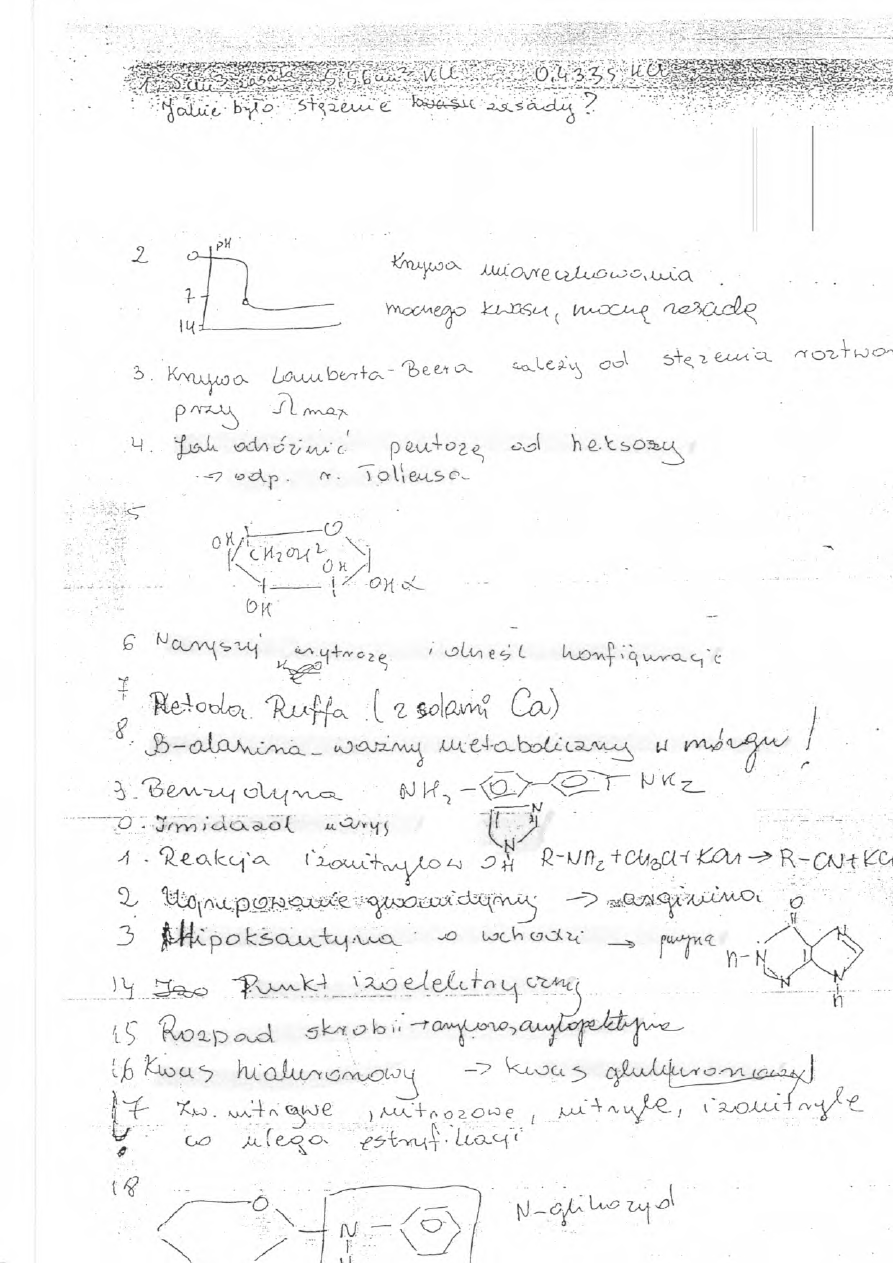 1. 5cm3 zasada 5,56cm3 HCl 0,4335 HCl
Jakie było stężenie kwasu zasady?
2 pH Krzywa miareczkowania
0
7 mocnego kwasu, mocną zasadą
14
3. Krzywa Lamberta-Beera zależy od stężenia roztwor
przy λmax
4. Jak odróżnić pentozę od heksozy
→ odp. r. Tollensa
5
O
OH CH2OH
OH
OH α
OH
6 Narysuj erytrozę i określ konfigurację
7 Metoda Ruffa (z solami Ca)
8. B-alanina - ważny metaboliczny w mózgu!
9. Benzydyna NH2 - NH2
0. Imidazol narys N
N
H
1. Reakcja izonitrylów R-NH2+CH3Cl+KOH → R-CN+KC
2 Ugrupowanie guanidyny → arginina
O
3 Hipoksantyna wchodzi → puryna H-N N
N N
H
14 Izo Punkt izoelektryczny
15 Rozpad skrobii → amyloza, amylopektyna
16 Kwas hialuronowy → kwas glukuronowy
17 Zw. nitrowe, nitrozowe, nitryle, izonitryle
co ulega estryfikacji
18
O
N N-glikozyd
H